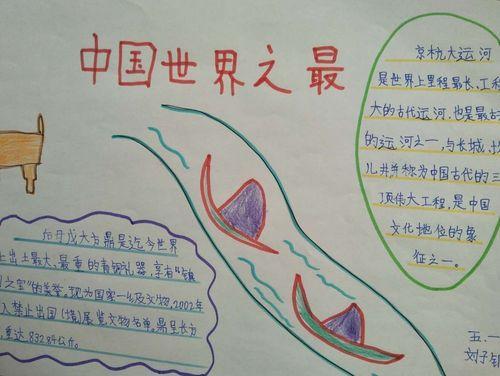 中国世界之最
京杭大运河
是世界上里程最长、工程
大的古代运河,也是最古
的运河之一,与长城、坎
儿井并称为中国古代的三
项伟大工程,是中国
文化地位的象
征之一。
后母戊大方鼎是迄今世界
上出土最大、最重的青铜礼器,享有“镇
国之宝”的美誉。现为国家一级文物,2002年
入禁止出国(境)展览文物名单。鼎呈长方
重达832.84公斤。
五.一
刘子